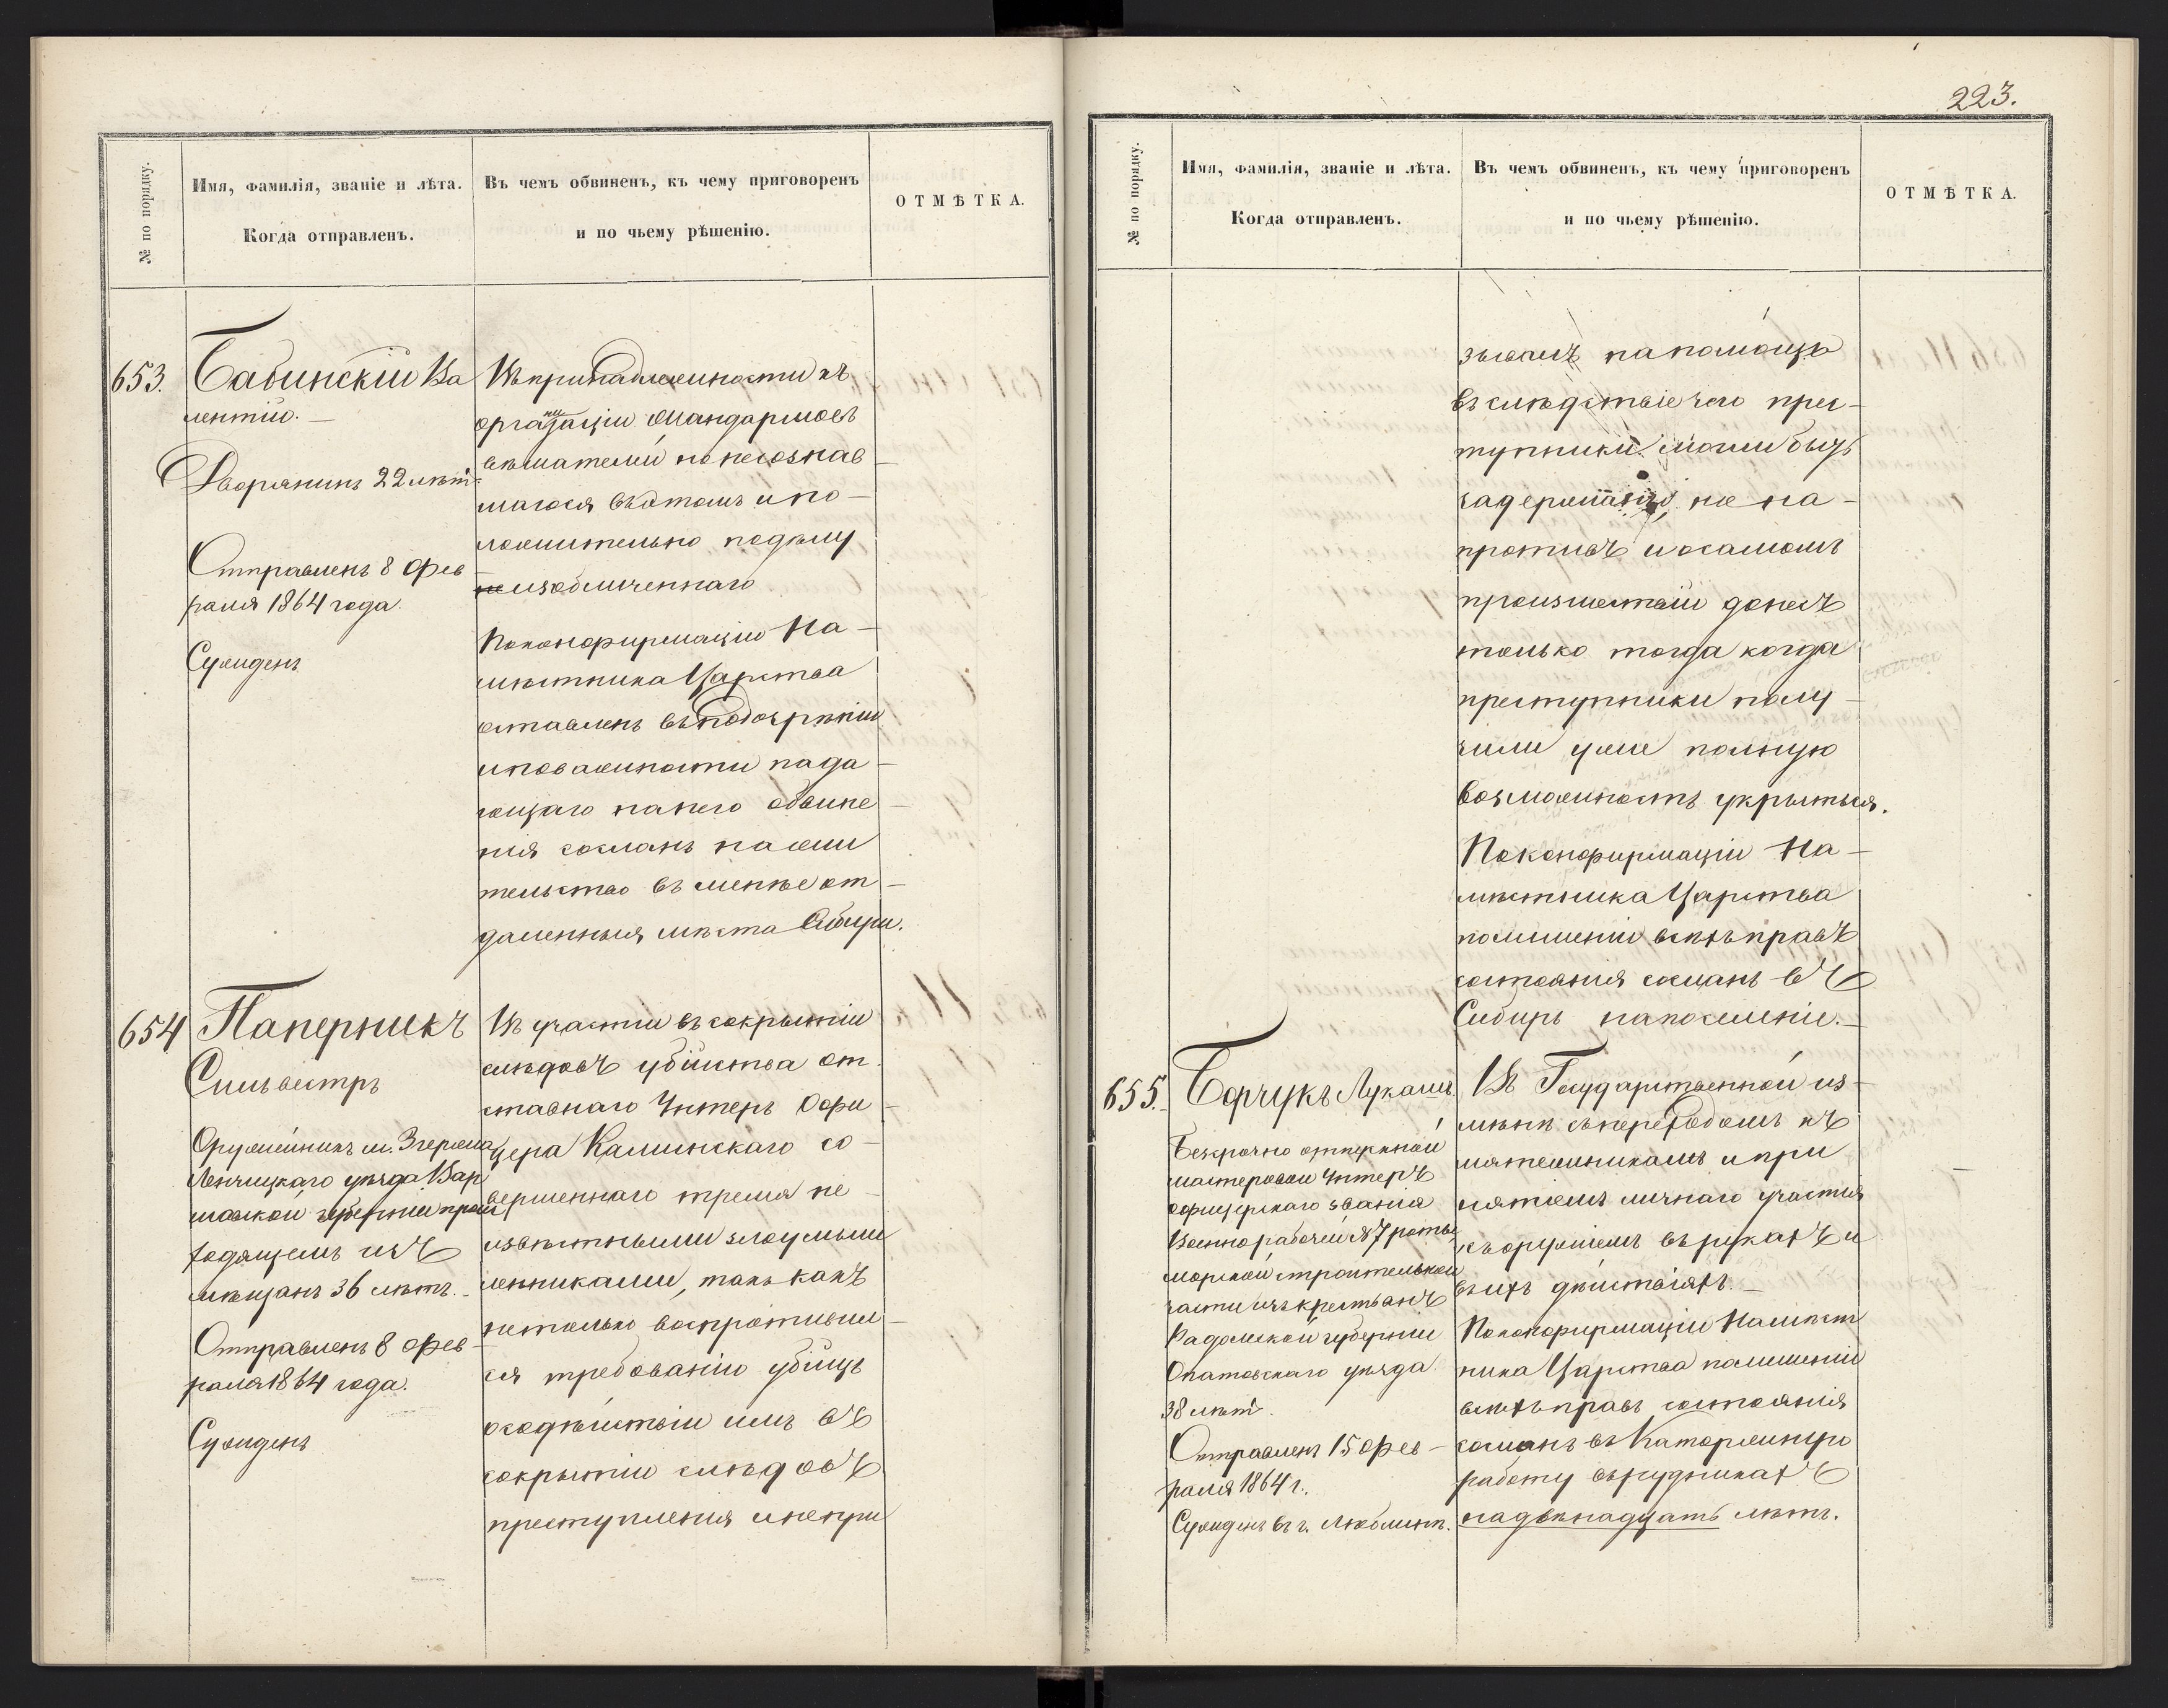 № по порядку.
Имя, фамилія, званіе и лѣта.
Когда отправленъ.
Въ чемъ обвиненъ, къ чему приговоренъ
и по чьему рѣшенію.
ОТМѢТКА.
653.
Бабинскій Ва
лентій. —
Дворянинъ 22 лѣтъ
Отправленъ 8 Фев
раля 1864 года.
Сужденъ
Въ принадлежности къ
организаціи жандармовъ
вѣшателей но несознав
шагося въ этомъ и по-
ложительно по дѣлу
неизобличеннаго
По конфирмаціи На-
мѣстника Царства
оставленъ въ подозрѣніи
и по важности пада-
ющаго на него обвине-
нія сосланъ на жи
тельство въ менѣе от-
даленныя мѣста Сибири.
654
Паперникъ
Сильвестръ
Оружейникъ м. Згержа
Ленчицкаго уѣзда Вар
шавской губерніи проис
ходящемъ изъ
мѣщанъ 36 лѣтъ. -
Отправленъ 8 Фев-
раля 1864 года.
Сужденъ
Въ участіи въ сокрытіи
слѣдовъ убійства от
ставнаго Унтеръ Офи-
цера Калинскаго со-
вершеннаго тремя не-
извѣстными злоумыш
ленниками, такъ какъ
нетолько воспротивил-
ся требованію убійцъ
о содѣйствіи имъ въ
сокрытіи слѣдовъ
преступленія и непри
223.
№ по порядку.
Имя, фамилія, званіе и лѣта.
Когда отправленъ.
Въ чемъ обвиненъ, къ чему приговоренъ
и по чьему рѣшенію.
ОТМѢТКА.
зывалъ на помощь
въ слѣдствіе чего прес-
тупники могли быть
задержаны, но на-
противъ и о самомъ
произшествіи донесъ
только тогда когда
преступники полу-
чили уже полную
возможность укрыться.
По конфирмаціи На-
мѣстника Царства
по лишеніи всѣхъ правъ
состоянія сосланъ въ
Сибирь на поселеніе. —
655.
Борчукъ Лукашъ
Безсрочно отпускной
мастеровой Унтеръ
офицерскаго званія
Военнорабочей № 7 роты
морской строительной
части изъ крестьянъ
Радомской губерніи
Опатовскаго уѣзда
38 лѣтъ.
Отправленъ 15 Фев-
раля 1864 г.
Сужденъ въ г. Люблинѣ.
Въ Государственной из-
мѣнѣ съ переходомъ къ
мятежникамъ и при
нятіемъ личнаго участія
съ оружіемъ въ рукахъ и
въ ихъ дѣйствіяхъ. —
По конфирмаціи Намѣст
ника Царства по лишеніи
всѣхъ правъ состоянія
сосланъ въ Каторжную
работу въ рудникахъ
на двѣнадцать лѣтъ.